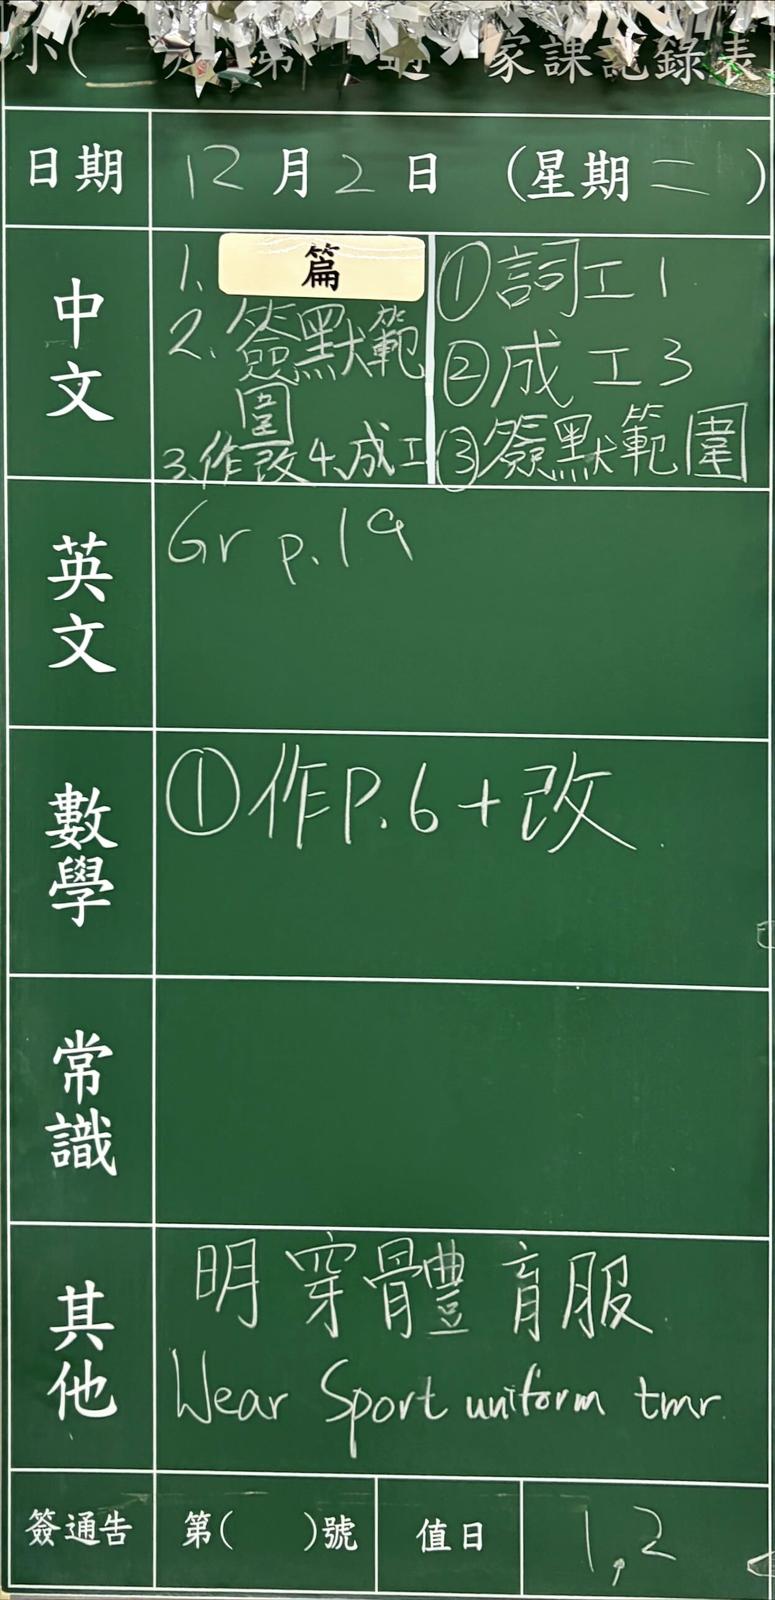 小( 二 第 家課記錄表
日期 12月2日 (星期二)
中文
1. 篇
2. 簽默範
圍
3.作改 4.成工
①詞工1
②成工3
③簽默範圍
英文
Gr p.19
數學
①作P.6+改
常識
其他
明穿體育服
Wear Sport uniform tmr
簽通告 第( )號 值日 1,2